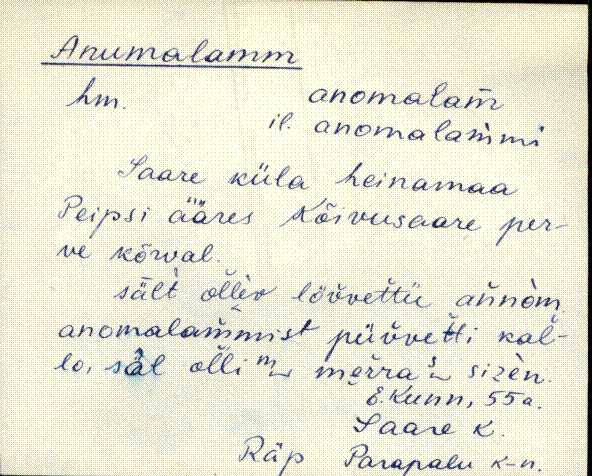 Anumalamm
hm. anomalam̀
il. anomalam̀mi
Saare küla heinamaa
Peipsi ääres Kõivusaare per-
ve kõrval.
sält ölliv löüvettü annom
anomalam̀mist püüvetti kal-
lo, säl olli mõrra sizèn.
E. Kunn, 55 a.
Saare k.
Räp Parapalu k-n.